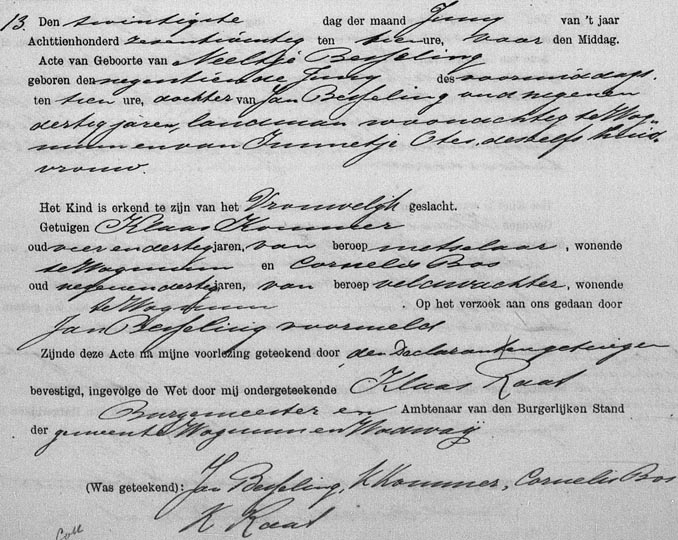 13. Den twintigste dag der maand Juny van 't jaar
Achttienhonderd zesentwintig ten tien ure, voor den Middag.
Acte van Geboorte van Neeltje Besseling
geboren den negentiende Juny des voormiddags
ten tien ure, dochter van Jan Besseling oud negenen
dertig jaren, landman woonachtig te Wog-
num en van Immetje Otes, deszelfs huis-
vrouw.
Het Kind is erkend te zijn van het Vrouwelijk geslacht.
Getuigen Klaas Kommer
oud vierendertig jaren, van beroep metselaar, wonende
te Wognum en Cornelis Bos
oud negenendertig jaren, van beroep veldwachter, wonende
te Wognum. Op het verzoek aan ons gedaan door
Jan Besseling voormeld
Zijnde deze Acte na mijne voorlezing geteekend door den Declarant en getuigen
bevestigd, ingevolge de Wet door mij ondergeteekende Klaas Raat
Burgemeester en Ambtenaar van den Burgerlijken Stand
der gemeente Wognum en Wadway
(Was geteekend): Jan Besseling, K Kommer, Cornelis Bos
K Raat
Coll